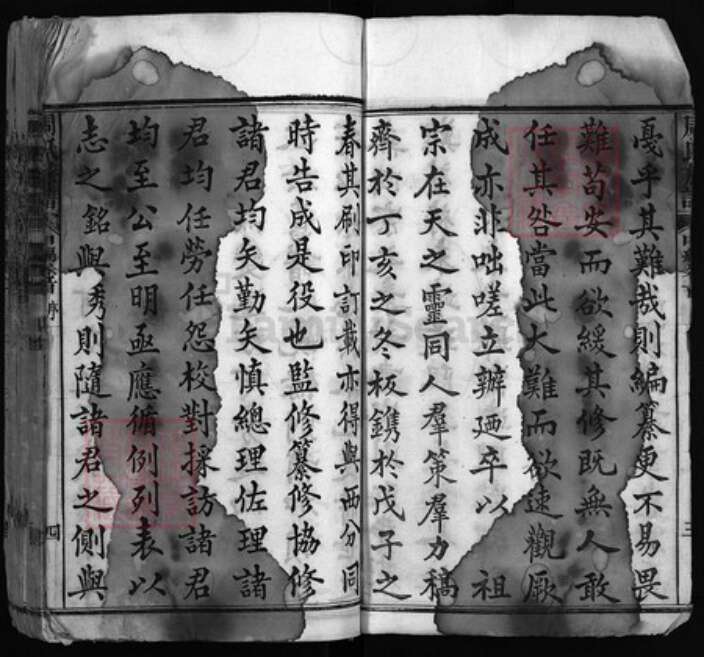 戞乎其難哉則編纂更不易畏
難苟安而欲緩其修既無人敢
任其咎當此大難而欲速觀厥
成亦非咄嗟立辦廼卒以 祖
宗在天之靈同人羣策羣力稿
齊於丁亥之冬板鐫於戊子之
春其刷印訂載亦得與西分同
時告成是役也監修纂修協修
諸君均矢勤矢慎總理佐理諸
君均任勞任怨校對採訪諸君
均至公至明亟應循例列表以
志之銘與琇則隨諸君之側與
三
四